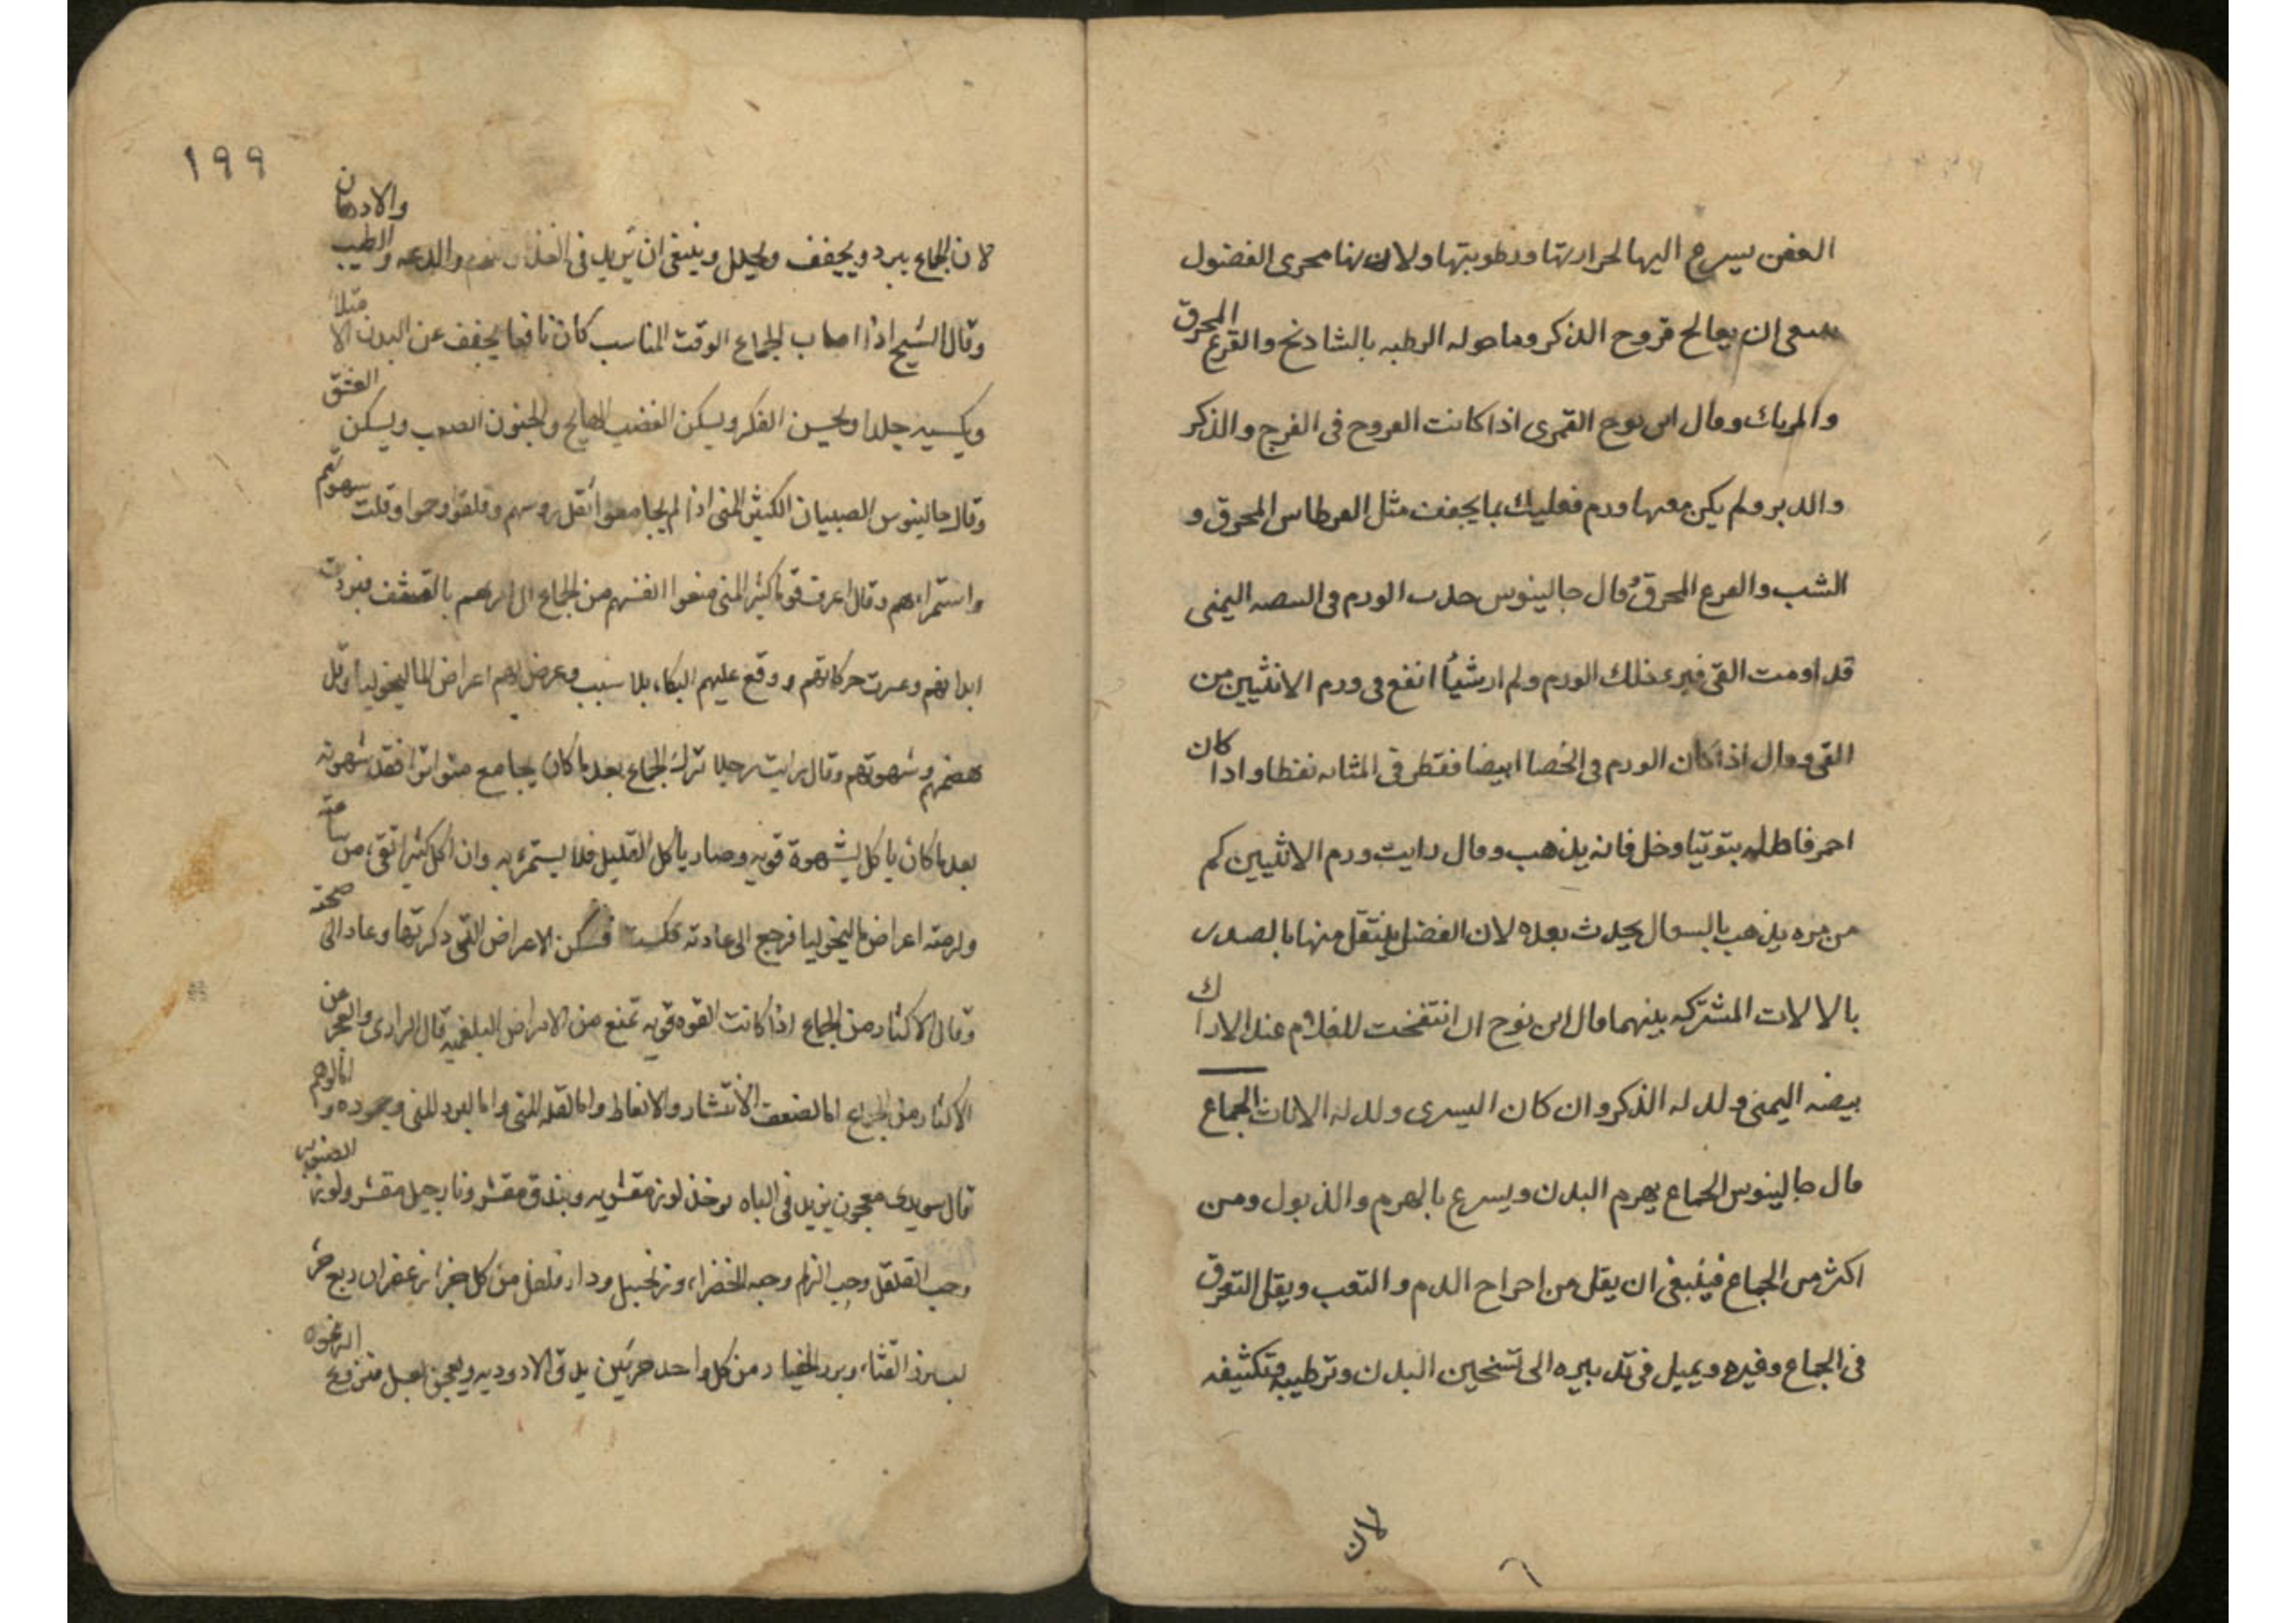 العفن يسرع اليها لحرارتها ورطوبتها ولان بها مجرى الفضول
ان يعالج قروح الذكر وما حوله الرطبه بالشادنج والقرع المحرق
والمرياك وقال ابن نوح القمرى اذا كانت القروح فى الفرج والذكر
والدبر ولم يكن معها ورم فعليك بما يجفف مثل القرطاس المحرق و
الشب والقرع المحرق وقال جالينوس حدث الورم فى البيضه اليمنى
قد اومت القى فبرى ذلك الورم ولم ار شيأ انفع فى ورم الانثيين من
القى وقال اذا كان الورم فى الخصا ابيضا فقطر فى المثانه نفطا واذا كان
احمر فاطله بتوتيا وخل فانه يذهب وقال رايت ورم الانثيين كم
من مره يذهب بالسعال يحدث بعده لان الفضل ينتقل منها بالصدر
بالالات المشتركه بينهما قال ابن نوح ان انتفخت للغلام عند الادراك
بيضه اليمنى ولد له الذكر وان كان اليسرى ولد له الاناث الجماع
قال جالينوس الجماع يهرم البدن ويسرع بالهرم والذبول ومن
اكثر من الجماع فينبغى ان يقل من اخراج الدم والتعب ويقل التعرق
فى الجماع وغيره ويميل فى تدبيره الى تسخين البدن وترطيبه وتكثيفه
لان
١٩٩
لان الجماع يبرد ويجفف ويحلل وينبغى ان يزيد فى الغذا والدعه والطيب والادهان
وقال الشيخ اذا اصاب الجماع الوقت المناسب كان نافعا يجفف عن البدن الا
ويكسبه جلدا ويحسن الفكر ويسكن الغضب الهايج والجنون الصعب ويسكن العشق
وقال جالينوس الصبيان الكثير المنى اذا لم يجامعوا اثقل روسهم وقلقوا وحموا وقلت شهوتهم
واستمراهم وقال اعرف قوما كثير المنى منعوا انفسهم من الجماع بالتقشف فبردت
ابدانهم وعسرت حركاتهم ووقع عليهم البكاء بلا سبب وعرض لهم اعراض الماليخوليا وقل
هضمهم وشهوتهم وقال رايت رجلا ترك الجماع بعد ما كان يجامع متواترا فقد شهوته
بعد ما كان ياكل بشهوة قويه وصار ياكل القليل فلا يستمرء به وان اكل كثيرا تقىء من ساعته
ولزمته اعراض ماليخوليا فرجع الى عادته فسكن الاعراض التى ذكرتها وعاد الى صحته
وقال الاكثار من الجماع اذا كانت القوه قويه تمنع من الامراض البلغميه قال الرازى والعجز عن
الاكثار من الجماع اما لضعف الانتشار والانعاظ واما لقله المنى واما لبرد المنى وجموده واما لوهم
قال سويدى معجون يزيد فى الباه يوخذ لوز مقشر وبندق مقشر ونارجيل مقشر ولوز الصنوبر
وحب القلقل وحب الزلم وحبه الخضراء وزنجبيل ودار فلفل من كل جزء زعفران ربع جزء
لب بزر القثاء وبزر الخيار من كل واحد جزئين يدق الادويه ويعجن بعسل منزوع الرغوه